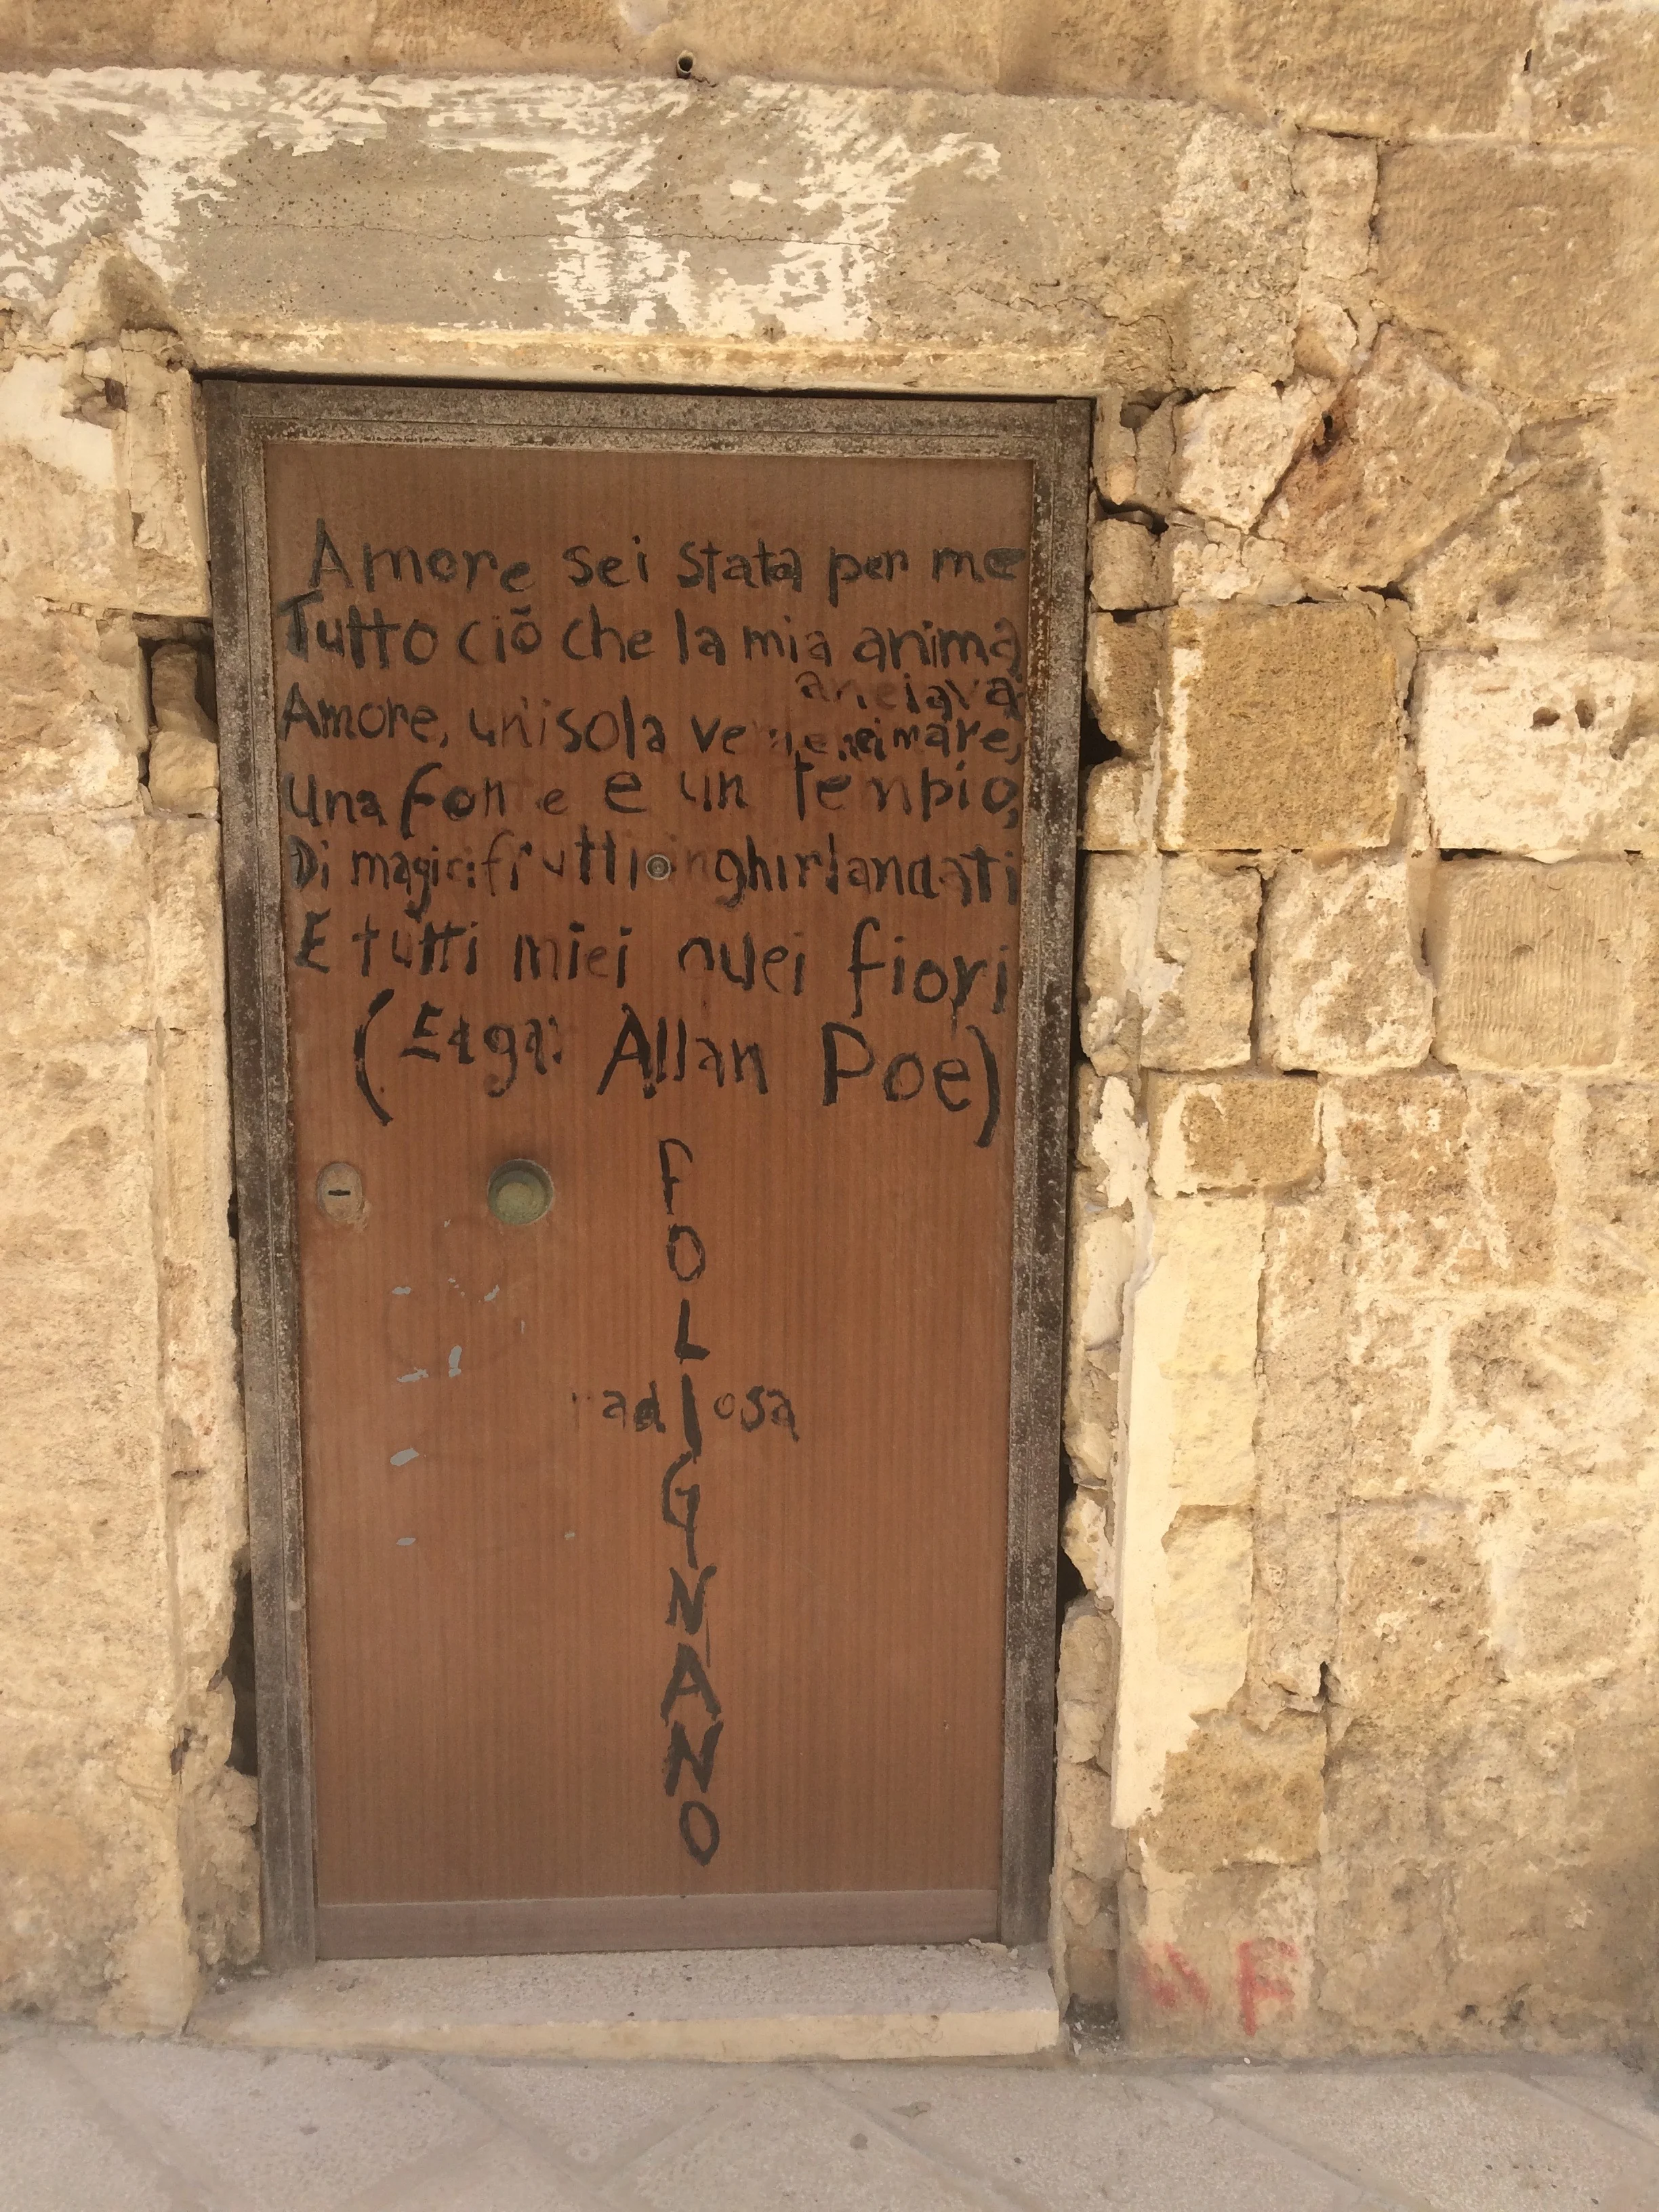 Amore sei stata per me
Tutto ciò che la mia anima
anelava
Amore, un'isola verde nel mare,
una fonte e un tempio,
Di magici frutti inghirlandati
E tutti miei quei fiori
(Edgar Allan Poe)
FOLIGNANO
radIosa